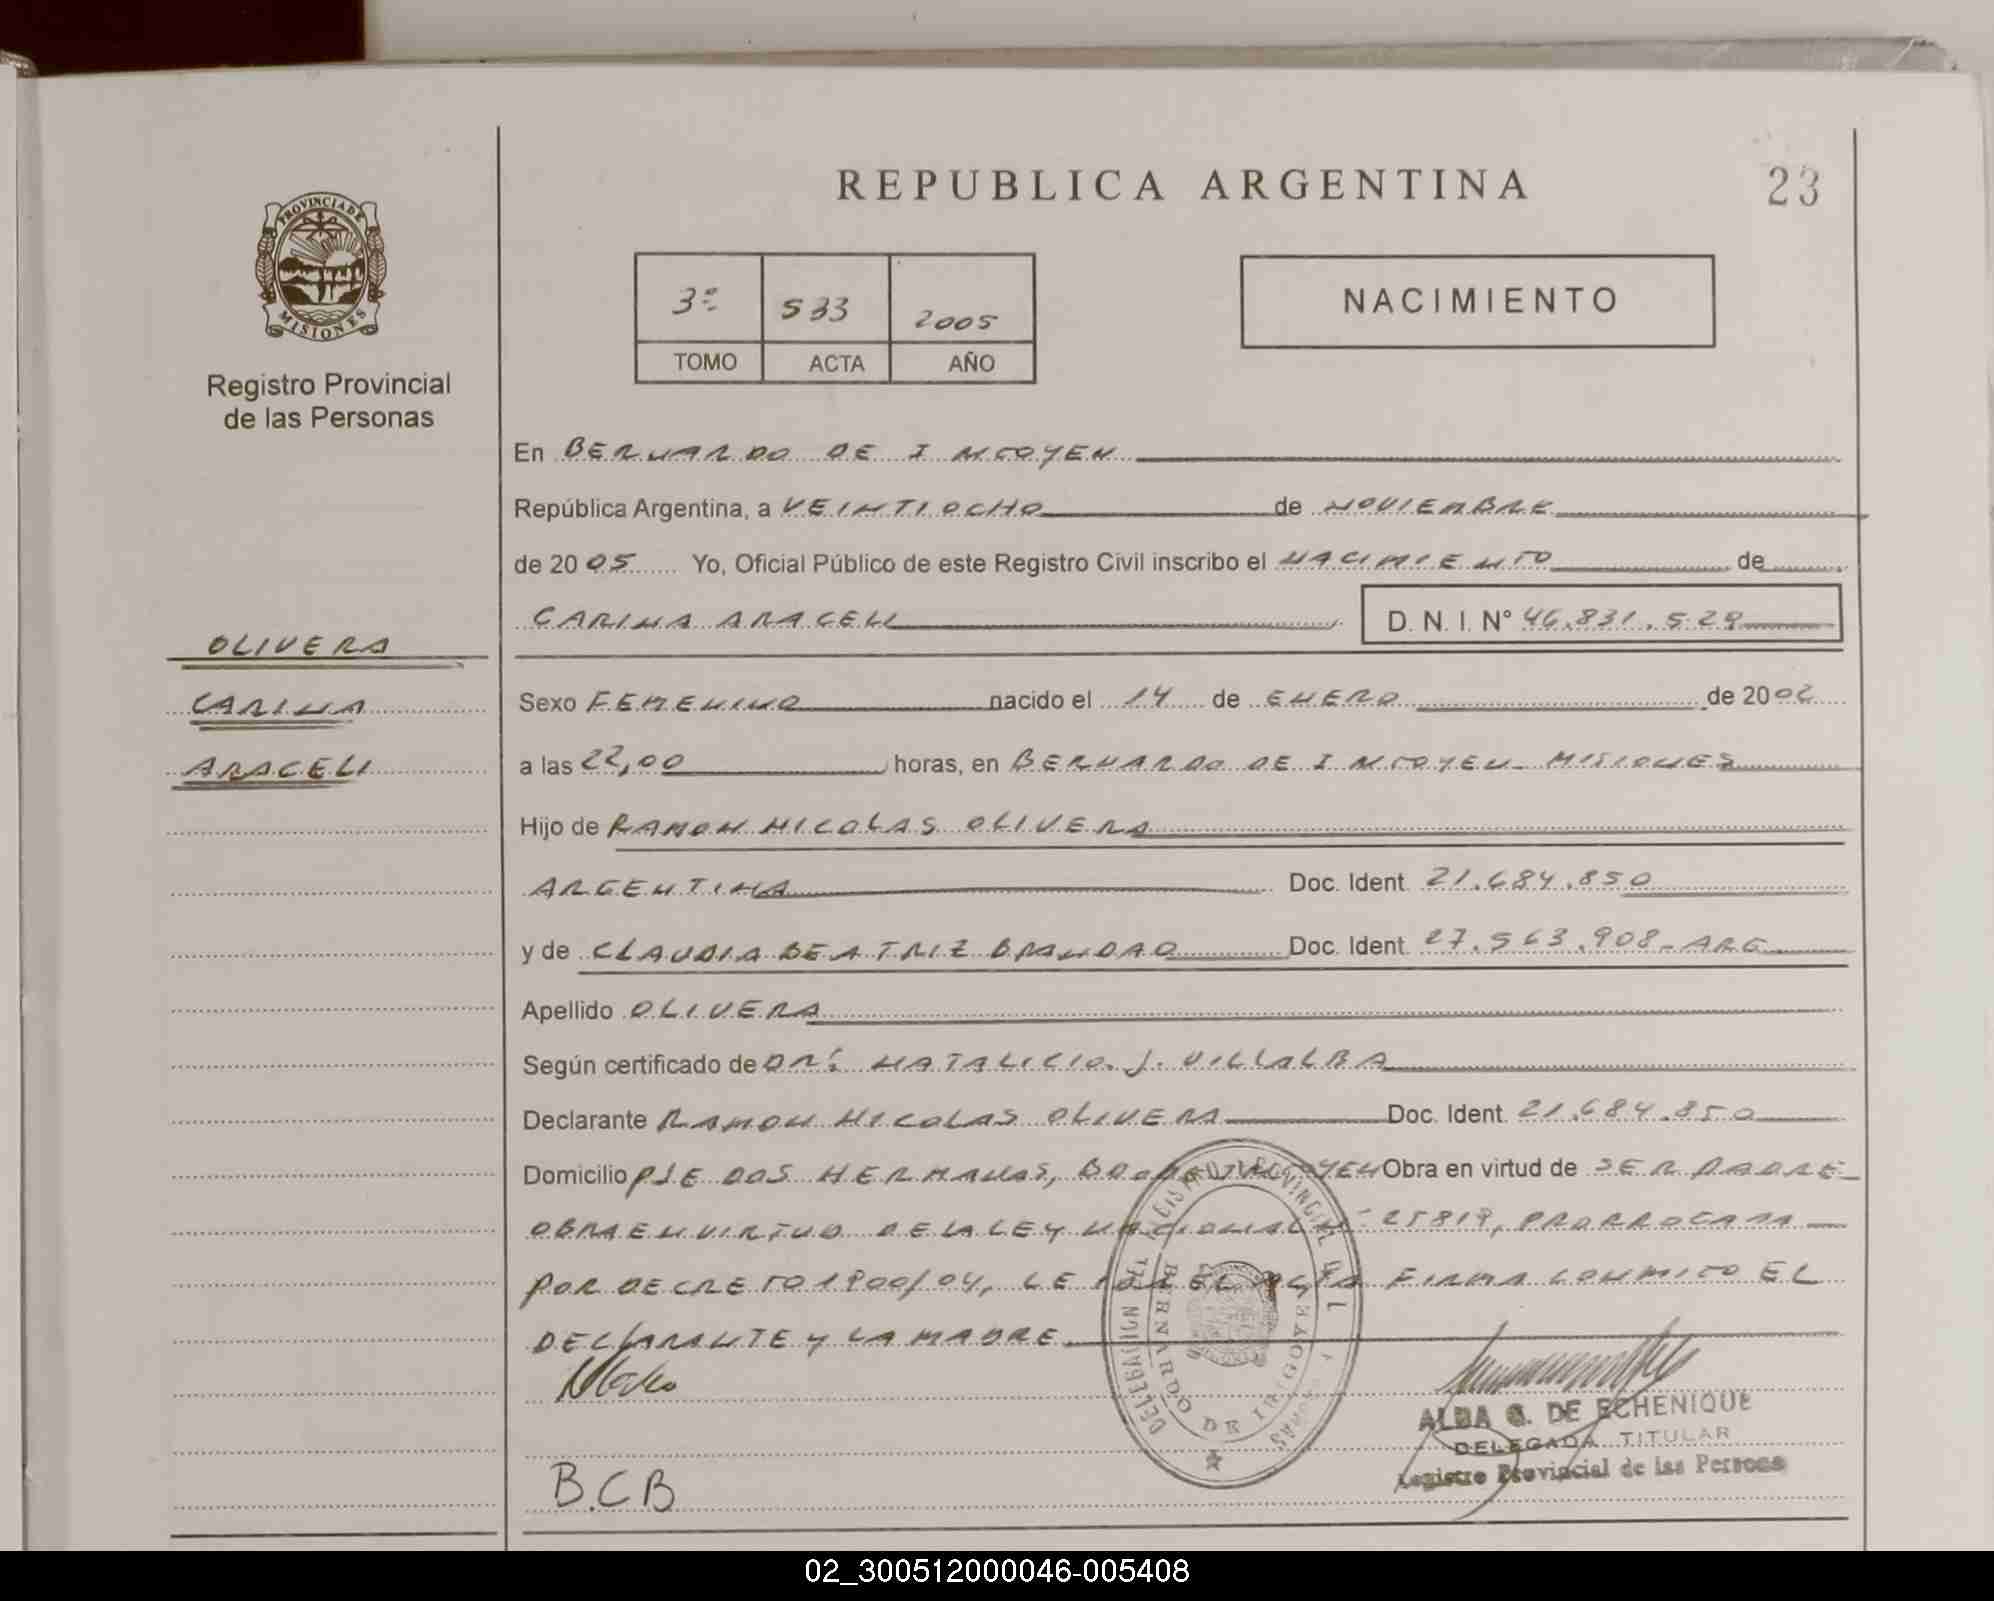 REPUBLICA ARGENTINA
23
PROVINCIA DE MISIONES
Registro Provincial
de las Personas
3º 533 2005
TOMO ACTA AÑO
NACIMIENTO
En BERNARDO DE IRIGOYEN
República Argentina, a VEINTIOCHO de NOVIEMBRE
de 2005 Yo, Oficial Público de este Registro Civil inscribo el NACIMIENTO de
CARINA ARACELI D. N. I. N° 46.831.529
OLIVERA
CARINA
ARACELI
Sexo FEMENINO nacido el 14 de ENERO de 2002
a las 22,00 horas, en BERNARDO DE IRIGOYEN- MISIONES
Hijo de RAMON NICOLAS OLIVERA
ARGENTINA Doc. Ident. 21.684.850
y de CLAUDIA BEATRIZ BRANDAO Doc. Ident. 27.563.908-ARG
Apellido OLIVERA
Según certificado de DR: NATALICIO. J. VILLALBA
Declarante RAMON NICOLAS OLIVERA Doc. Ident. 21.684.850
Domicilio PJE DOS HERMANAS, Obra en virtud de SER PADRE-
OBRA EN VIRTUD DE LA LEY NACIONAL Nº 25819, PRORROGADA
POR DECRETO 1900/04, LEIDA EL ACTA FIRMA CONMIGO EL
DECLARANTE Y LA MADRE
DELEGACION BERNARDO DE IRIGOYEN
ALBA G. DE ECHENIQUE
DELEGADA TITULAR
Registro Provincial de las Personas
B.C.B
02_300512000046-005408